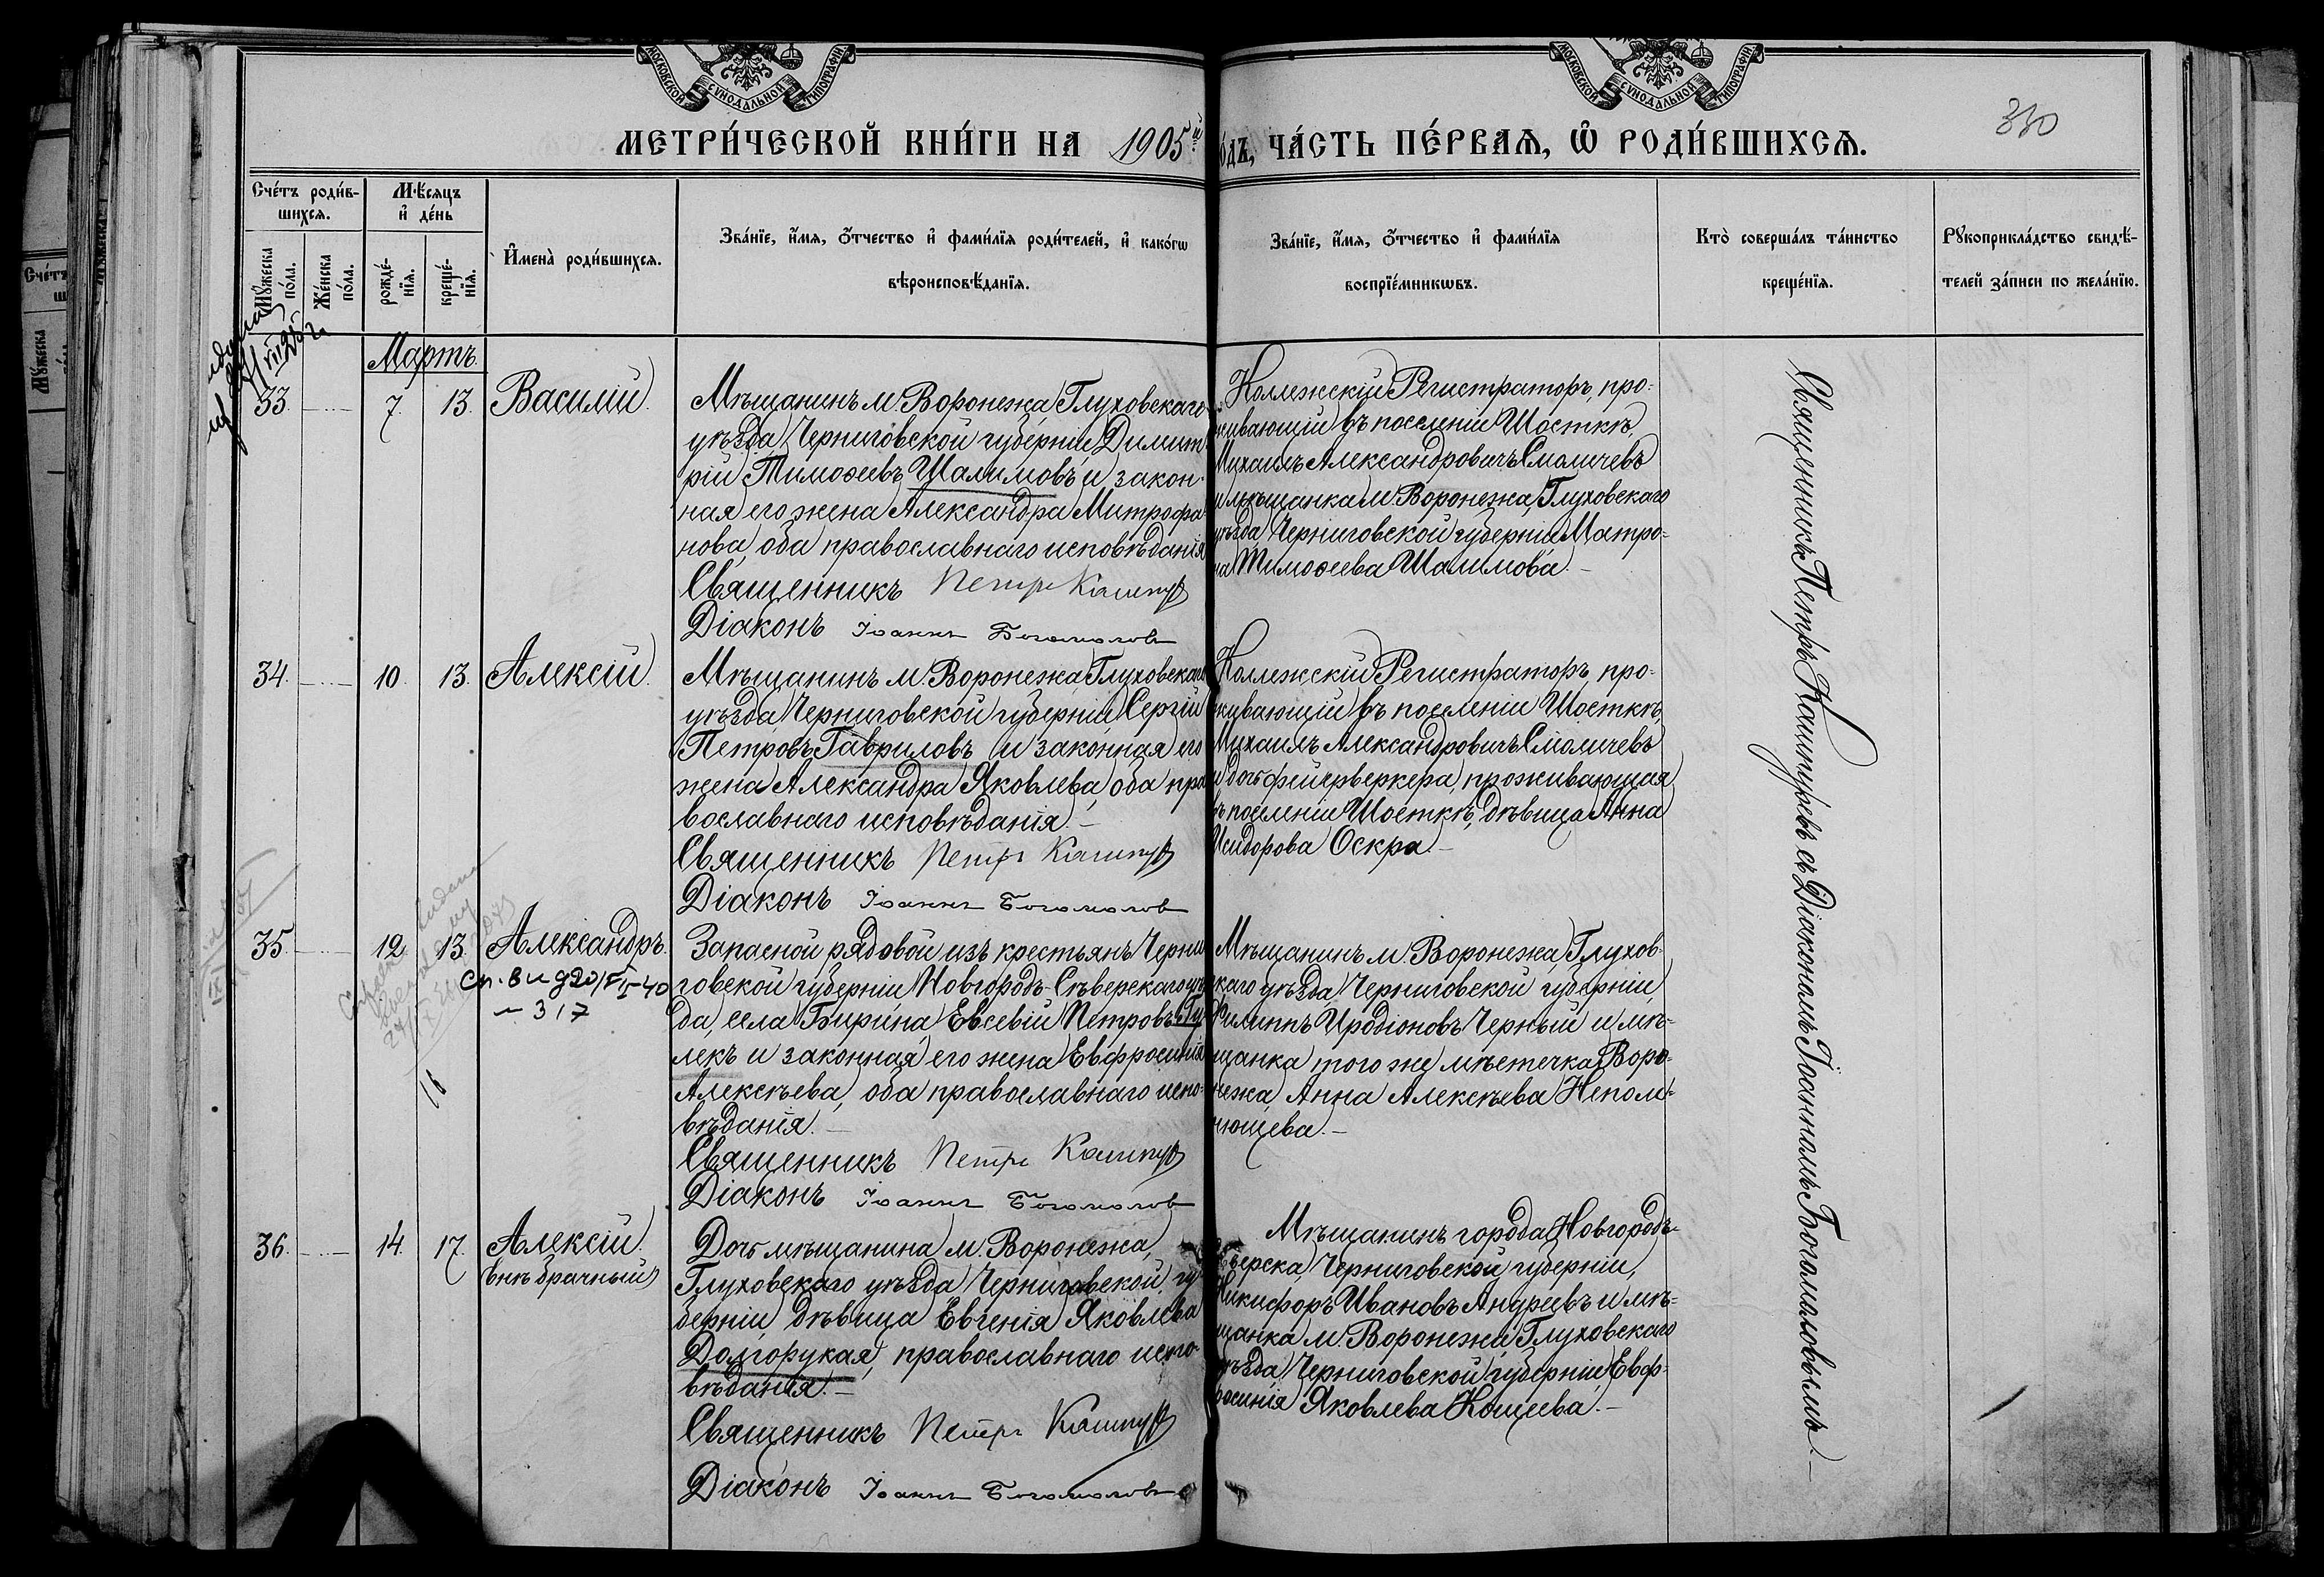 МОСКОВСКОЙ СѴНОДАЛЬНОЙ ТИПОГРАФІИ
МОСКОВСКОЙ СѴНОДАЛЬНОЙ ТИПОГРАФІИ
МЕТРИ́ЧЕСКОЙ КНИ́ГИ НА 1905й
о́дъ, ЧА́СТЬ ПЕ́РВАѦ, Ѽ РОДИ́ВШИХСѦ.
330
Сче́тъ роди́в-
шихсѧ.
Мꙋжеска по́ла.
Же́нска по́ла.
Мѣ́сѧцъ
и҆ де́нь
рожде́-
нїѧ.
креще́-
нїѧ.
И҆мена̀ роди́вшихсѧ.
Зва́нїе, и҆́мѧ, о҆́тчество и҆ фами́лїѧ роди́телей, и҆ како́гѡ
вѣроисповѣ́данїѧ.
Зва́нїе, и҆́мѧ, о҆́тчество и҆ фами́лїѧ
воспрїе́мникѡвъ.
Кто̀ соверша́лъ та́инство
креще́нїѧ.
Рꙋкоприкла́дство свидѣ́-
телей за́писи по жела́нїю.
Мартъ.
33. 7. 13. Василій.
Мѣщанинъ м. Воронежа, Глуховскаго
уѣзда, Черниговской губерніи Димит
рій Тимоѳеевъ Шалимовъ и закон-
ная его жена Александра Митрофа
нова, оба православнаго исповѣданія
Священникъ Петръ Кашпур
Діаконъ Іоаннъ Богомолов
Коллежскій Регистраторъ, про-
живающій въ поселеніи Шосткѣ,
Михаилъ Александровичъ Смоличевъ
и мѣщанка м. Воронежа, Глуховскаго
уѣзда Черниговской губерніи Матро-
на Тимоѳеева Шалимова.–
34. 10. 13. Алексій.
Мѣщанинъ м. Воронежа, Глуховскаго
уѣзда Черниговской губерніи Сергій
Петровъ Гавриловъ и законная его
жена Александра Яковлева, оба пра
вославнаго исповѣданія.–
Священникъ Петръ Кашпур
Діаконъ Іоаннъ Богомолов
Коллежскій Регистраторъ, про-
живающій въ поселеніи Шосткѣ,
Михаилъ Александровичъ Смоличевъ
и дочь фейерверкера, проживающая
въ поселеніи Шосткѣ, дѣвица Анна
Исидорова Оскра.–
35. 12. 13. Александръ.
Сп. вид 20/VI-40
№ 317
Запасной рядовой изъ крестьянъ Черни
говской губерніи Новгородъ-Сѣверскаго уѣз
да, села Бирина, Евсевій Петровъ Гу
лекъ и законная его жена Евфросинія
Алексѣева, оба православнаго испо-
вѣданія.–
Священникъ Петръ Кашпур
Діаконъ Іоаннъ Богомолов
Мѣщанинъ м. Воронежа, Глухов-
скаго уѣзда, Черниговской губерніи,
Филиппъ Иродіоновъ Черный и мѣ-
щанка того же мѣстечка Воро-
нежа, Анна Алексѣева Непом-
нющева.–
36. 14. 17. Алексій.
(внѣбрачный)
Дочь мѣщанина м. Воронежа,
Глуховскаго уѣзда Черниговской гу
берніи, дѣвица Евгенія Яковлева
Долгорукая, православнаго испо-
вѣданія.–
Священникъ Петръ Кашпур
Діаконъ Іоаннъ Богомолов
Мѣщанинъ города Новгородъ-
Сѣверска, Черниговской губерніи,
Никифоръ Ивановъ Андреевъ и мѣ-
щанка м. Воронежа, Глуховскаго
уѣзда, Черниговской губерніи, Евф-
росинія Яковлева Кощеева.–
Священникъ Петръ Кашпуръ съ Діакономъ Іоанномъ Богомоловымъ.–